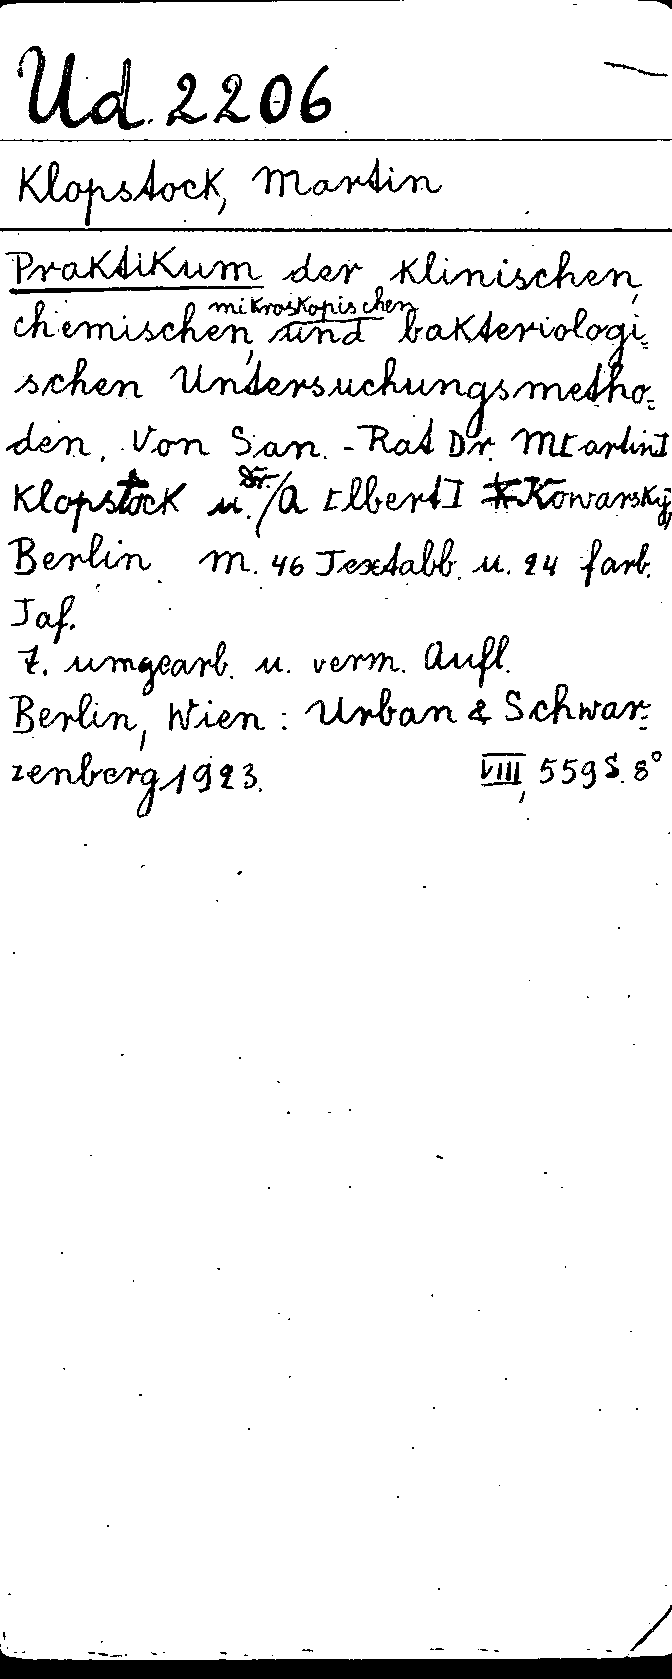 Ud. 2206
Klopstock, Martin
Praktikum der klinischen,
chemischen, mikroskopischen und bakteriologi-
schen Untersuchungsmetho-
den. Von San.-Rat Dr. M[artin]
Klopstock u. Dr. A[lbert] Kowarsky,
Berlin. M. 46 Textabb. u. 24 farb.
Taf.
7. umgearb. u. verm. Aufl.
Berlin, Wien: Urban & Schwar-
zenberg 1923. VIII, 559 S. 8°